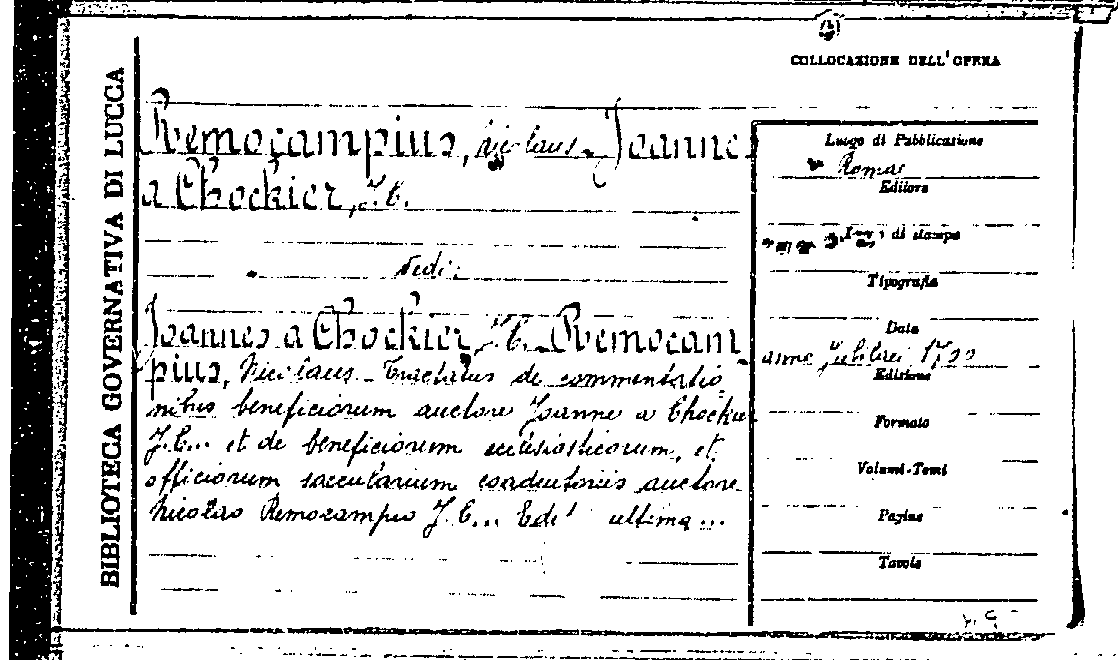 BIBLIOTECA GOVERNATIVA DI LUCCA
COLLOCAZIONE DELL'OPERA
Remocampius, Nicolaus - Joannes
a Chockier, J.C.
Vedi:
Joannes a Chockier J.C. - Remocam
pius, Nicolaus - Tractatus de commentatio
nibus beneficiorum auctore Joanne a Chockier
J.C... et de beneficiorum ecclesiasticorum, et
officiorum saecularium coadeutoriis auctore
Nicolao Remocampio J.C... Ede' ultima...
Luogo di Pubblicazione
Romae
Editore
di stampa
Tipografia
Data
anno Jubilaei 1700
Edizione
Formato
Volumi-Tomi
Pagine
Tavole